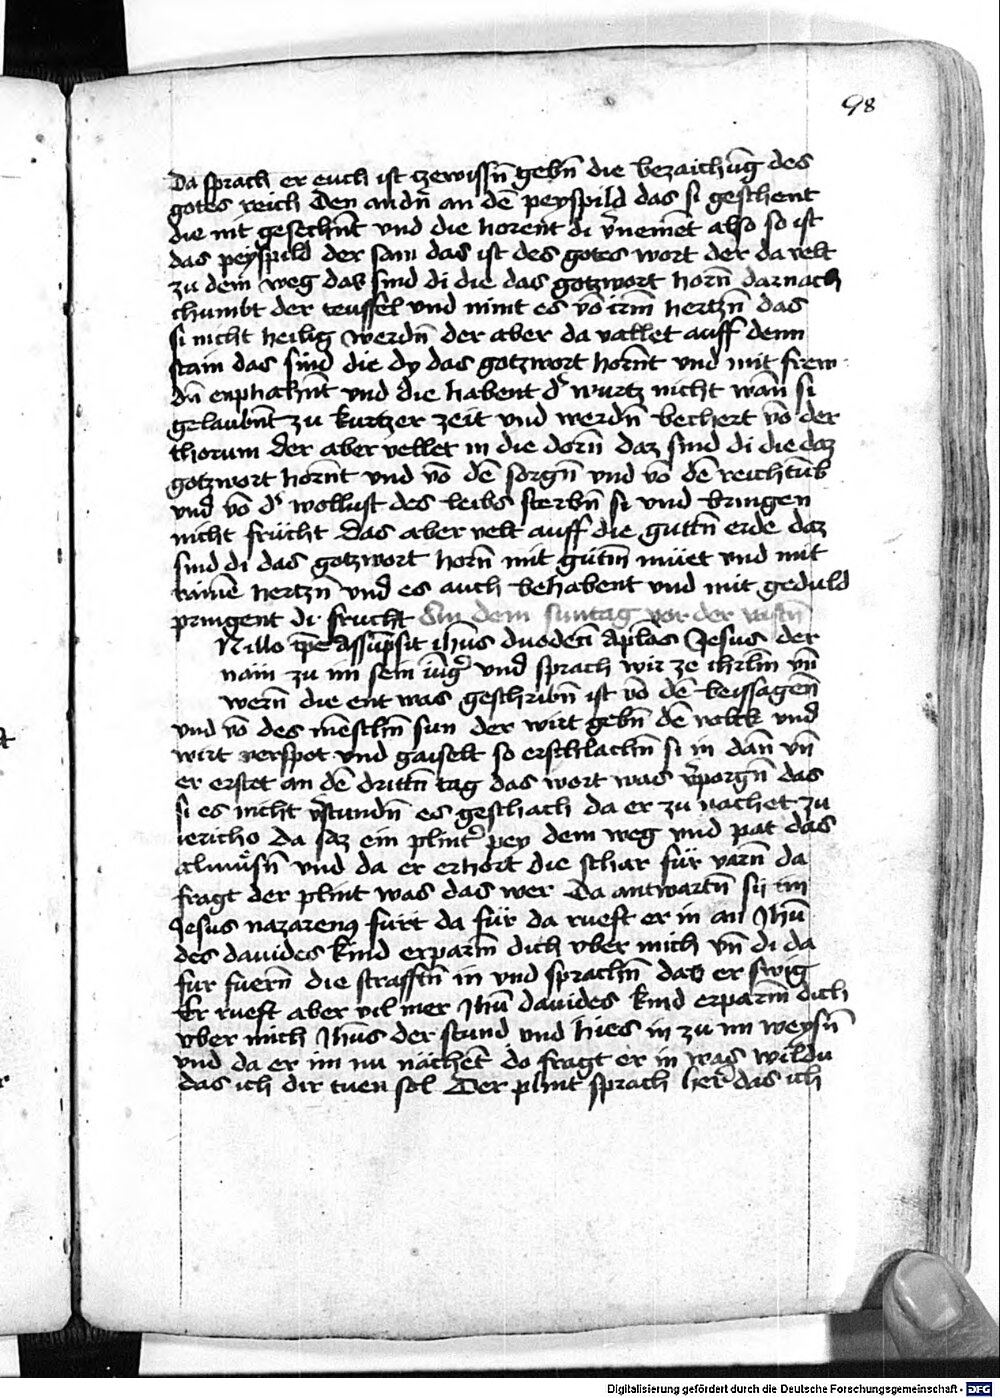 98
Da sprach er euch ist czewissn̄ gebn̄ die bezaichūg des
gotes reich Den andn̄ an dē peyspild das si gesehent
die nit gesechn̄t vnd die horent di v̄nemēt also so ist
das peyspild der sam das ist des gotes wort der da velt
zu dem weg das sind di die das gotzwort horn̄ darnach
chumbt der teuffel vnd nimt es vō irm̄ hertzn̄ das
si nicht heilig werdn̄ der aber da vallet auff denn
stain das sind die dy das gotzwort hornt vnd mit frew
dn̄ enphahn̄t vnd die habent d' wurtz nicht wān si
gelaubn̄t zu kurtzer zeit vnd werdn̄ bechert vō der
chorum der aber vellet in die dorn̄ daz sind di die daz
gotzwort hornt vnd vō dē sorgn̄ vnd vō dē reichtūb
vnd vō d' wollust des leibs sterbn̄ si vnd bringen
nicht frücht das aber velt auff die guttn̄ erde daz
sind di das gotzwort horn̄ mit gütm̄ müet vnd mit
rainē hertzn̄ vnd es auch behabent vnd mit geduld
pringent di frucht An dem suntag vor der vastn̄
N illo tp̄e Assūpsit ih̄us duodeci ap̄los Jesus der
nam zu im sein iūg' vnd sprach wir ze ihrlm̄ vn̄
wern̄ die ent was geschribn̄ ist vō dē beissagēn
vnd vō des menschn̄ sun der wirt gebn̄ dē volck vnd
wirt verspot vnd gaiselt so erschlachn̄ si in dān vn̄
er erstet an dē drittn̄ tag das wort was v̄porgn̄ das
si es nicht v̄stundn̄ es geschach da er zu nachet zu
iericho da saz ein plint' pey dem weg vnd pat das
almüsn̄ vnd da er erhort die schar für varn̄ da
fragt der plint was das wer Da antwartn̄ sy im
Jesus nazarenus fürt da für da rueft er in an Jhū
des dauides kind erparm̄ dich vber mich vn̄ di da
fur fuern̄ die straffn̄ in vnd sprachn̄ das er swig
Er rueft aber vil mer Jhū dauides kind erparm̄ dich
vber mich Jhūs der stund vnd hies in zu im weysn̄
vnd da er im nu nächet do fragt er in was wildu
das ich dir tuen sol Der plint sprach her das ich
Digitalisierung gefördert durch die Deutsche Forschungsgemeinschaft - DFG